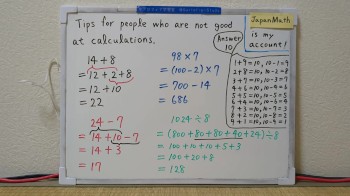 Tips for people who are not good
at calculations.
14 + 8
= 12 + 2 + 8
= 12 + 10
= 22
24 - 7
= 14 + 10 - 7
= 14 + 3
= 17
98 × 7
= (100 - 2) × 7
= 700 - 14
= 686
1024 ÷ 8
= (800 + 80 + 80 + 40 + 24) ÷ 8
= 100 + 10 + 10 + 5 + 3
= 100 + 20 + 8
= 128
JapanMath
is my
account!
Answer
10
1 + 9 = 10, 10 - 1 = 9
2 + 8 = 10, 10 - 2 = 8
3 + 7 = 10, 10 - 3 = 7
4 + 6 = 10, 10 - 4 = 6
5 + 5 = 10, 10 - 5 = 5
6 + 4 = 10, 10 - 6 = 4
7 + 3 = 10, 10 - 7 = 3
8 + 2 = 10, 10 - 8 = 2
9 + 1 = 10, 10 - 9 = 1